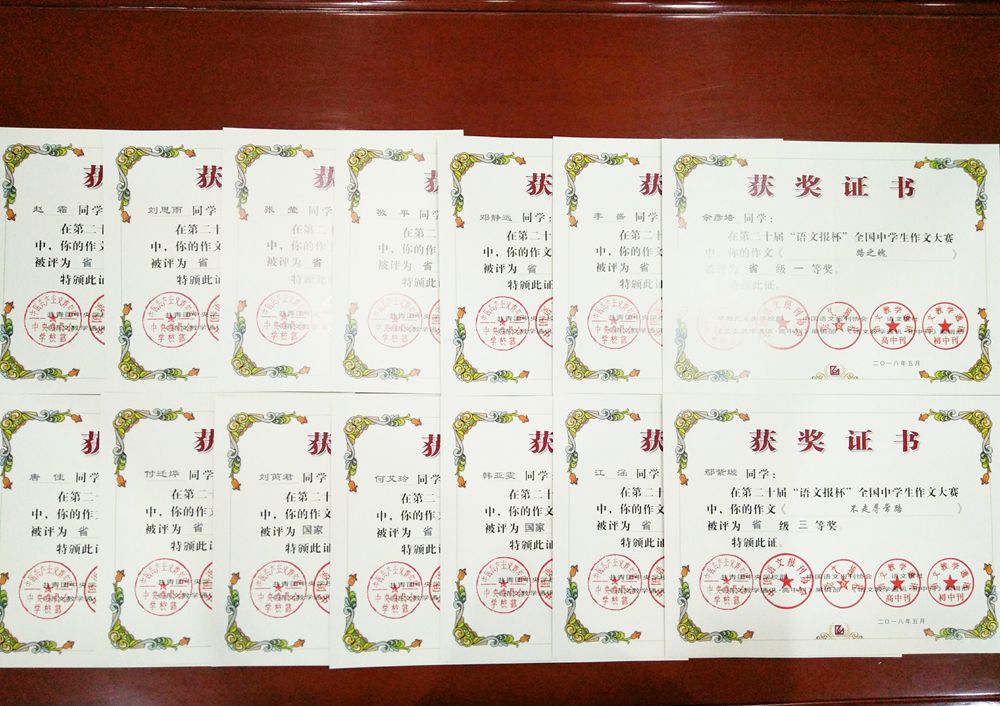 获
赵 霜 同学
在第二十
中，你的作文
被评为 省
特颁此证
获
刘思雨 同学
在第二十
中，你的作文
被评为 省
特颁此证
获
张 莹 同学
在第二十
中，你的作文
被评为 省
特颁此证
获
敬 平 同学
在第二十
中，你的作文
被评为 省
特颁此证
获
邓静远 同学：
在第二十
中，你的作文
被评为 省
特颁此证
获
李 盛 同学
在第二十
中，你的作文
被评为 省
特颁此证
获奖证书
余彦培 同学：
在第二十届“语文报杯”全国中学生作文大赛
中，你的作文《 路之魂 》
被评为 省 级 一 等奖。
特颁此证。
高中刊
初中刊
二〇一八年五月
获
唐 佳 同学
在第二十
中，你的作文
被评为 省
特颁此证
获
同学
在第二十
中，你的作文
被评为 省
特颁此证
获
刘芮君 同学
在第二十
中，你的作文
被评为 国家
特颁此证
获
何艾玲 同学
在第二十
中，你的作文
被评为 省
特颁此证
获
韩亚雯 同学
在第二十
中，你的作文
被评为 国家
特颁此证
获
江 涵 同学
在第二十
中，你的作文
被评为 省
特颁此证
获奖证书
鄢紫璇 同学：
在第二十届“语文报杯”全国中学生作文大赛
中，你的作文《 不走寻常路 》
被评为 省 级 三 等奖。
特颁此证。
高中刊
初中刊
二〇一八年五月